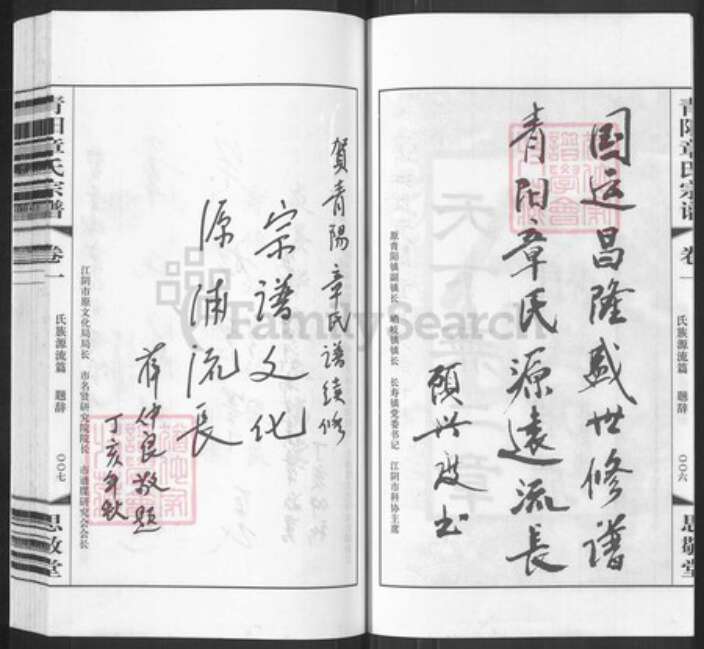 青阳章氏宗谱
卷一
氏族源流篇 题辞
〇〇六
思敬堂
国运昌隆盛世修谱
青阳章氏源遠流長
顾兴
书
长寿镇党委书记 江阴市科协主席
賀青陽章氏譜续修
宗譜文化
源浦流長
薛仲良敬题
丁亥年秋
江阴市原文化局局长 市名贤研究院院长 市谱牒研究会会长
青阳章氏宗谱
卷一
氏族源流篇 题辞
〇〇七
思敬堂
FamilySearch